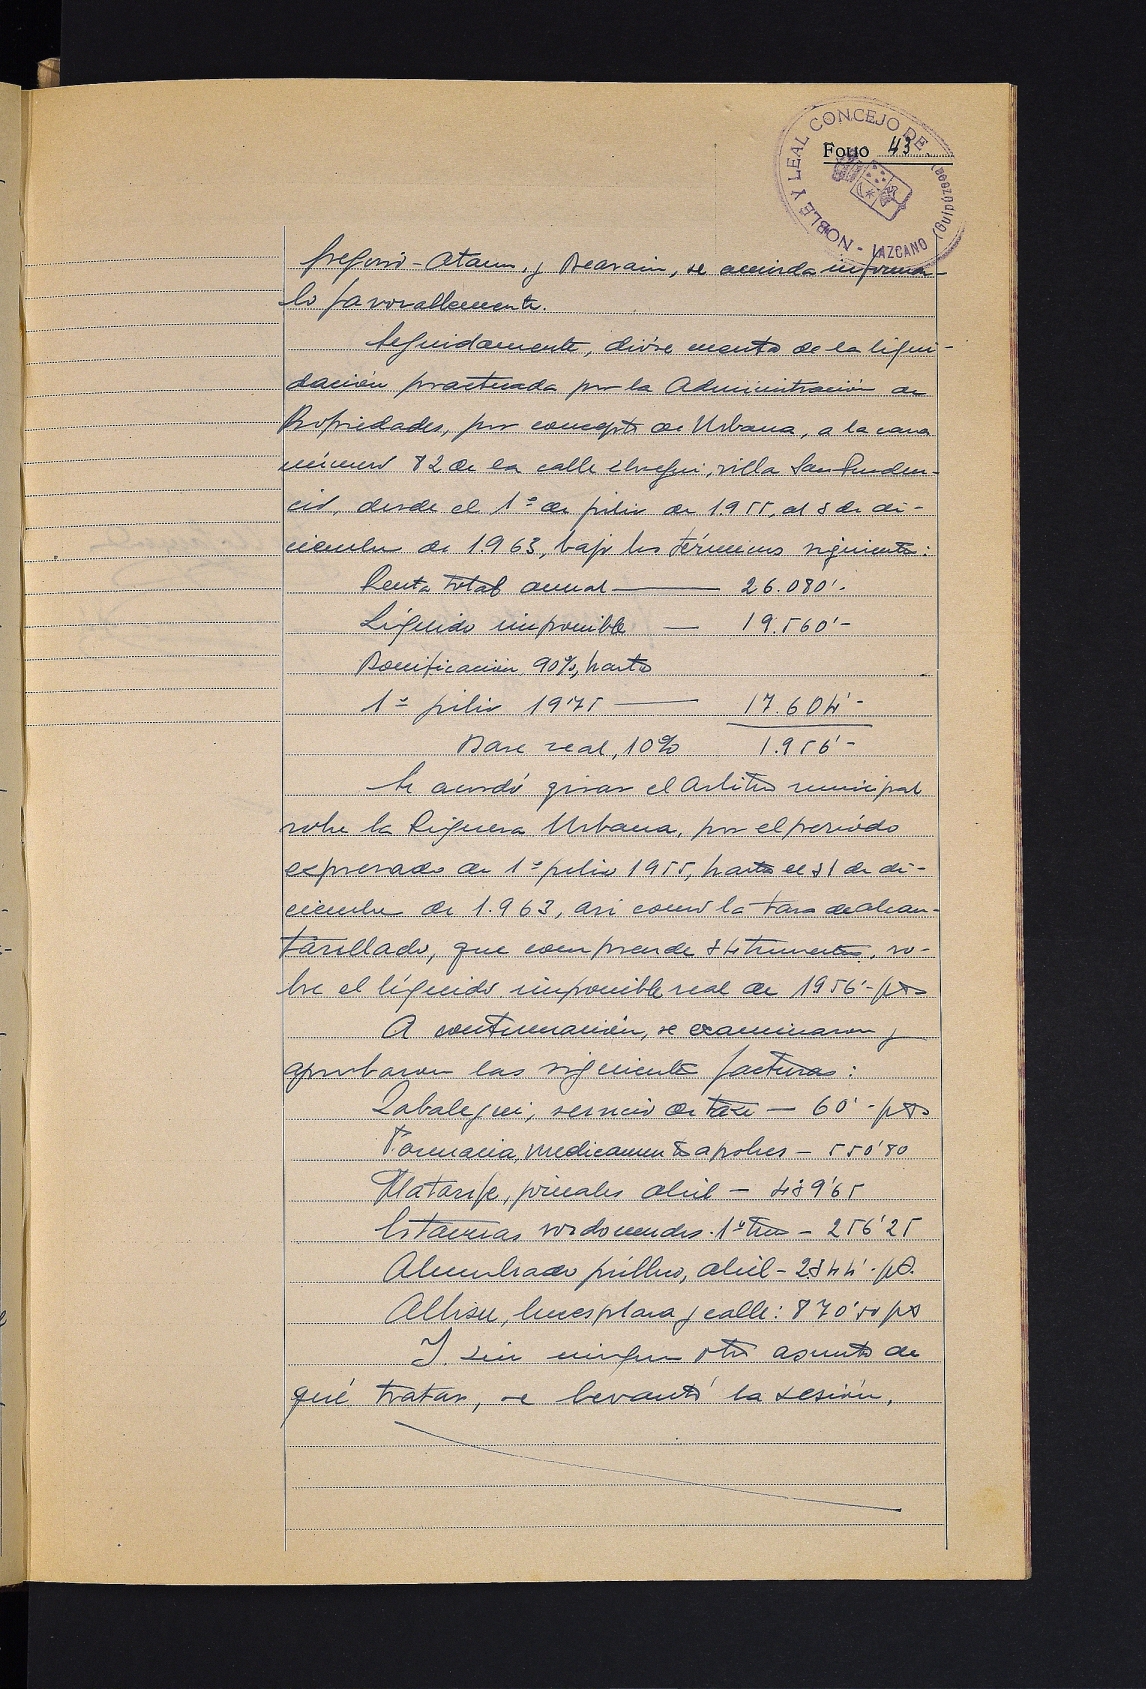 NOBLE Y LEAL CONCEJO DE LAZCANO (Guipúzcoa)
Folio 43
Gregorio-Ataun, y Beasain, se acuerda informar-
lo favorablemente.
Seguidamente, dióse cuenta de la liqui-
dación practicada por la Administración de
Propiedades, por concepto de Urbana, a la casa
número 82 de la calle Elosegui, villa San Pruden-
cio, desde el 1º de julio de 1.955, al 31 de di-
ciembre de 1.963, bajo los términos siguientes:
Renta total anual — 26.080'-
Líquido imponible — 19.560'-
Bonificación 90%, hasta
1º julio 1975 — 17.604'-
Base real, 10% 1.956'-
Se acordó girar el Arbitrio municipal
sobre la Riqueza Urbana, por el período
expresado de 1º julio 1955, hasta el 31 de di-
ciembre de 1.963, así como la tasa de alcan-
tarillado, que comprende 34 trimestres, so-
bre el líquido imponible real de 1956'- pts
A continuación, se examinaron y
aprobaron las siguientes facturas:
Zabalegui, servicio de taxi — 60'- pts
Farmacia, medicamentos a pobres — 550'80
Matarife, jornales abril —
Estancias sordomudos. 1º trim — 256'25
Alumbrado público, abril — 2344'- pts.
Albisu, luces plaza y calle: 870'50 pts
Y sin ningún otro asunto de
qué tratar, se levantó la sesión.